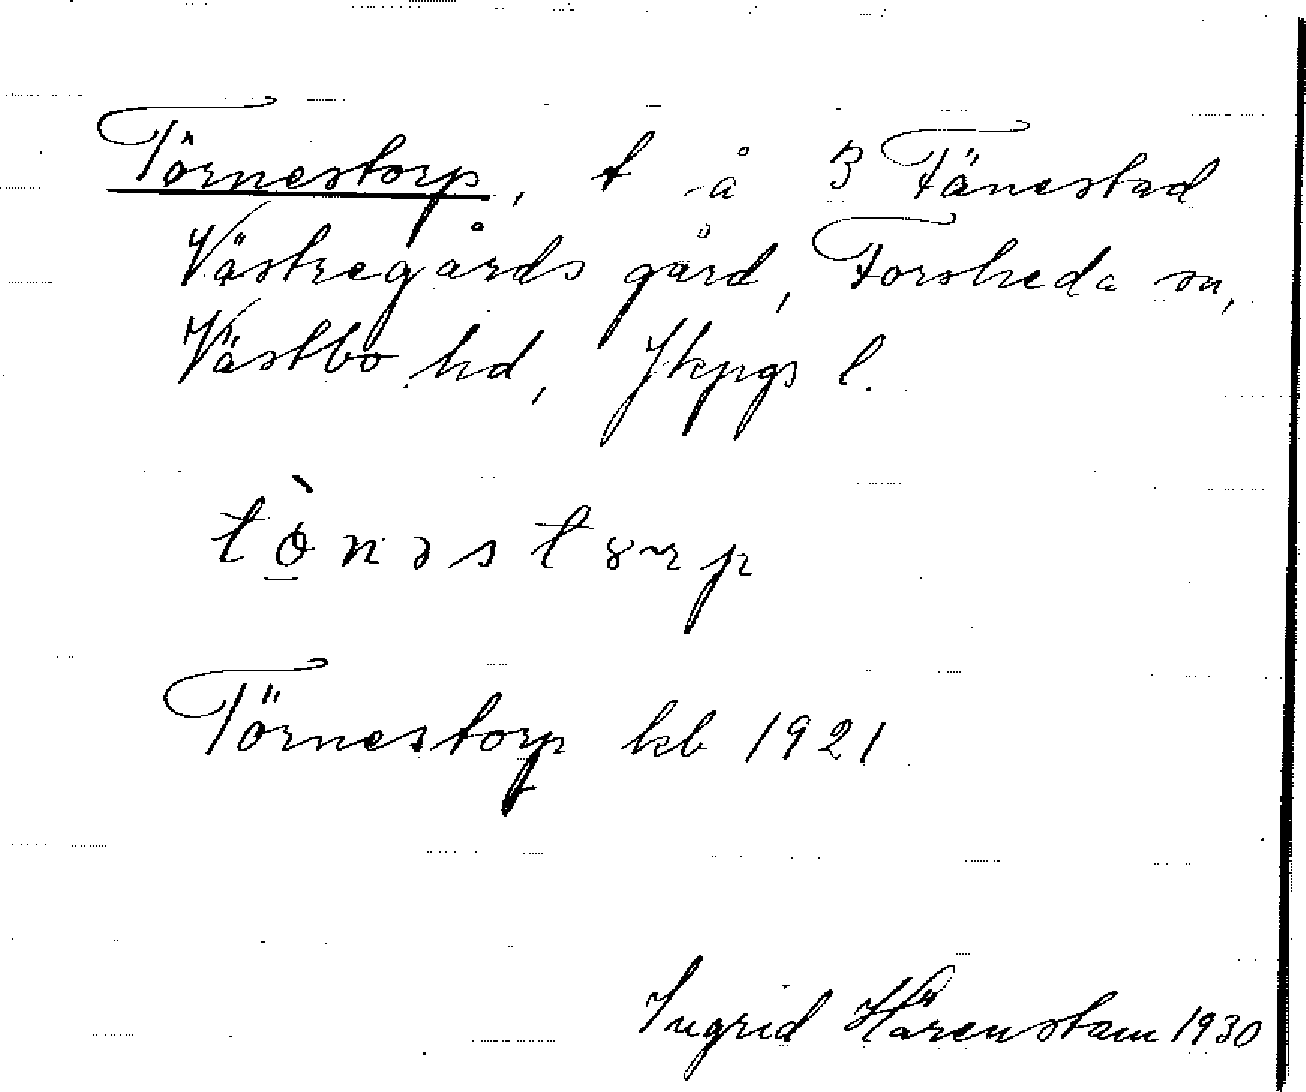 Törnestorp, t å 3 Fänestad
Västregårds gård, Forsheda sn,
Västbo hd, Jkpgs l.
tö̀nəstorp
Törnestorp kb 1921
Ingrid Härenstam 1930